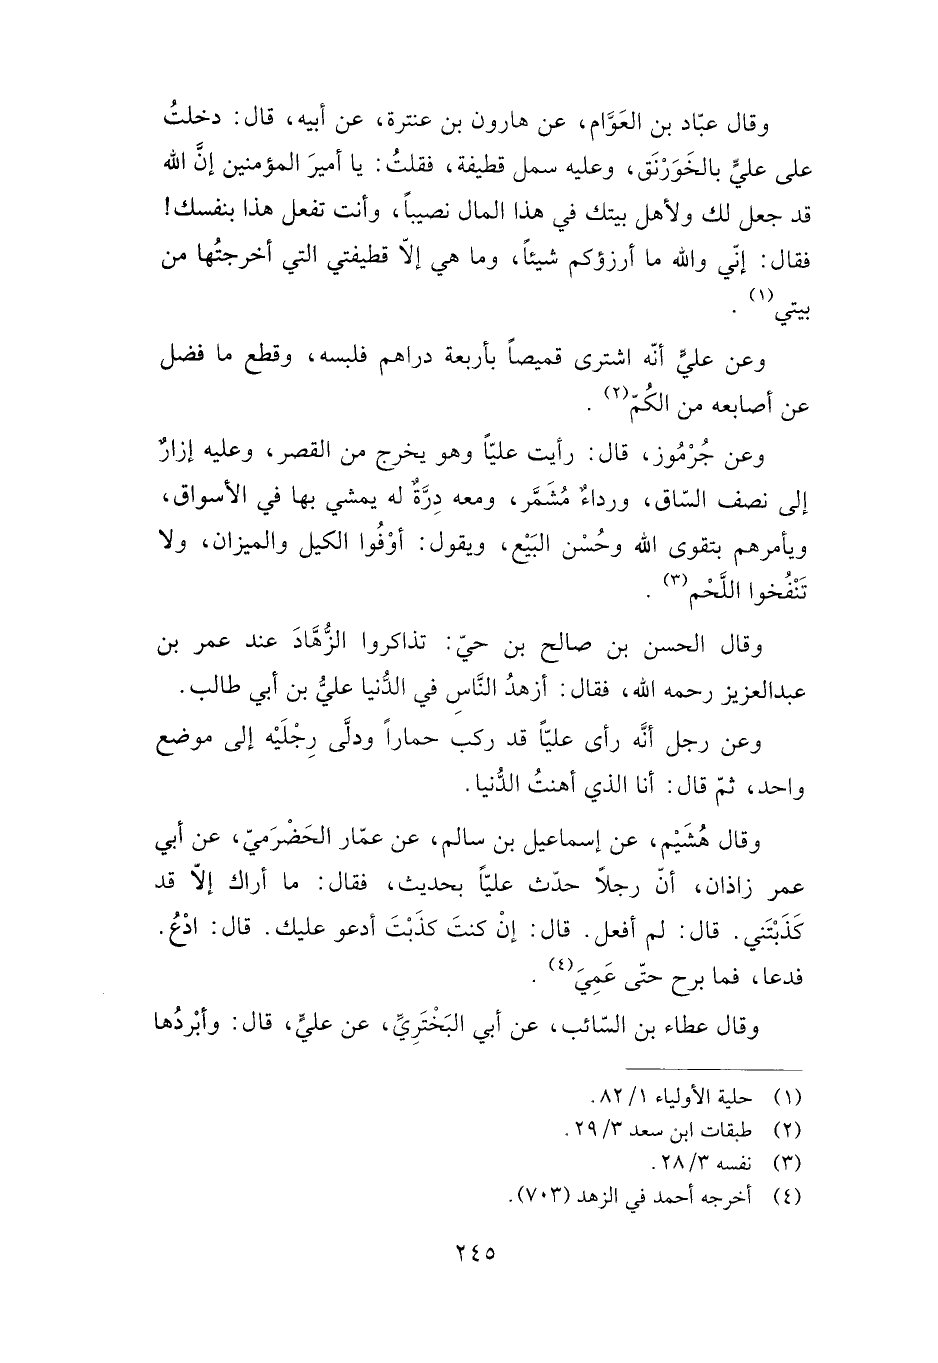 وقال عبّاد بن العَوَّام، عن هارون بن عنترة، عن أبيه، قال: دخلتُ
على عليٍّ بالخَوَرْنَق، وعليه سمل قطيفة، فقلتُ: يا أميرَ المؤمنين إنَّ الله
قد جعل لك ولأهل بيتك في هذا المال نصيباً، وأنت تفعل هذا بنفسك!
فقال: إنّي والله ما أرزؤكم شيئاً، وما هي إلاّ قطيفتي التي أخرجتُها من
بيتي(١) .
وعن عليٍّ أنّه اشترى قميصاً بأربعة دراهم فلبسه، وقطع ما فضل
عن أصابعه من الكُمّ(٢) .
وعن جُرْمُوز، قال: رأيت عليّاً وهو يخرج من القصر، وعليه إزارٌ
إلى نصف السّاق، ورداءٌ مُشَمَّر، ومعه دِرَّةٌ له يمشي بها في الأسواق،
ويأمرهم بتقوى الله وحُسْن البَيْع، ويقول: أوْفُوا الكيل والميزان، ولا
تَنْفُخوا اللَّحْم(٣) .
وقال الحسن بن صالح بن حيّ: تذاكروا الزُّهَّادَ عند عمر بن
عبدالعزيز رحمه الله، فقال: أزهدُ النَّاسِ في الدُّنيا عليُّ بن أبي طالب.
وعن رجل أنَّه رأى عليّاً قد ركب حماراً ودلَّى رِجْلَيْه إلى موضع
واحد، ثمّ قال: أنا الذي أهنتُ الدُّنيا.
وقال هُشَيْم، عن إسماعيل بن سالم، عن عمّار الحَضْرَميّ، عن أبي
عمر زاذان، أنّ رجلاً حدّث عليّاً بحديث، فقال: ما أراك إلاّ قد
كَذَبْتَني. قال: لم أفعل. قال: إنْ كنتَ كذَبْتَ أدعو عليك. قال: ادْعُ.
فدعا، فما برح حتّى عَمِيَ(٤) .
وقال عطاء بن السّائب، عن أبي البَخْتَرِيِّ، عن عليٍّ، قال: وأبْردُها
(١) حلية الأولياء ١/ ٨٢.
(٢) طبقات ابن سعد ٣/ ٢٩.
(٣) نفسه ٣/ ٢٨.
(٤) أخرجه أحمد في الزهد (٧٠٣).
٢٤٥